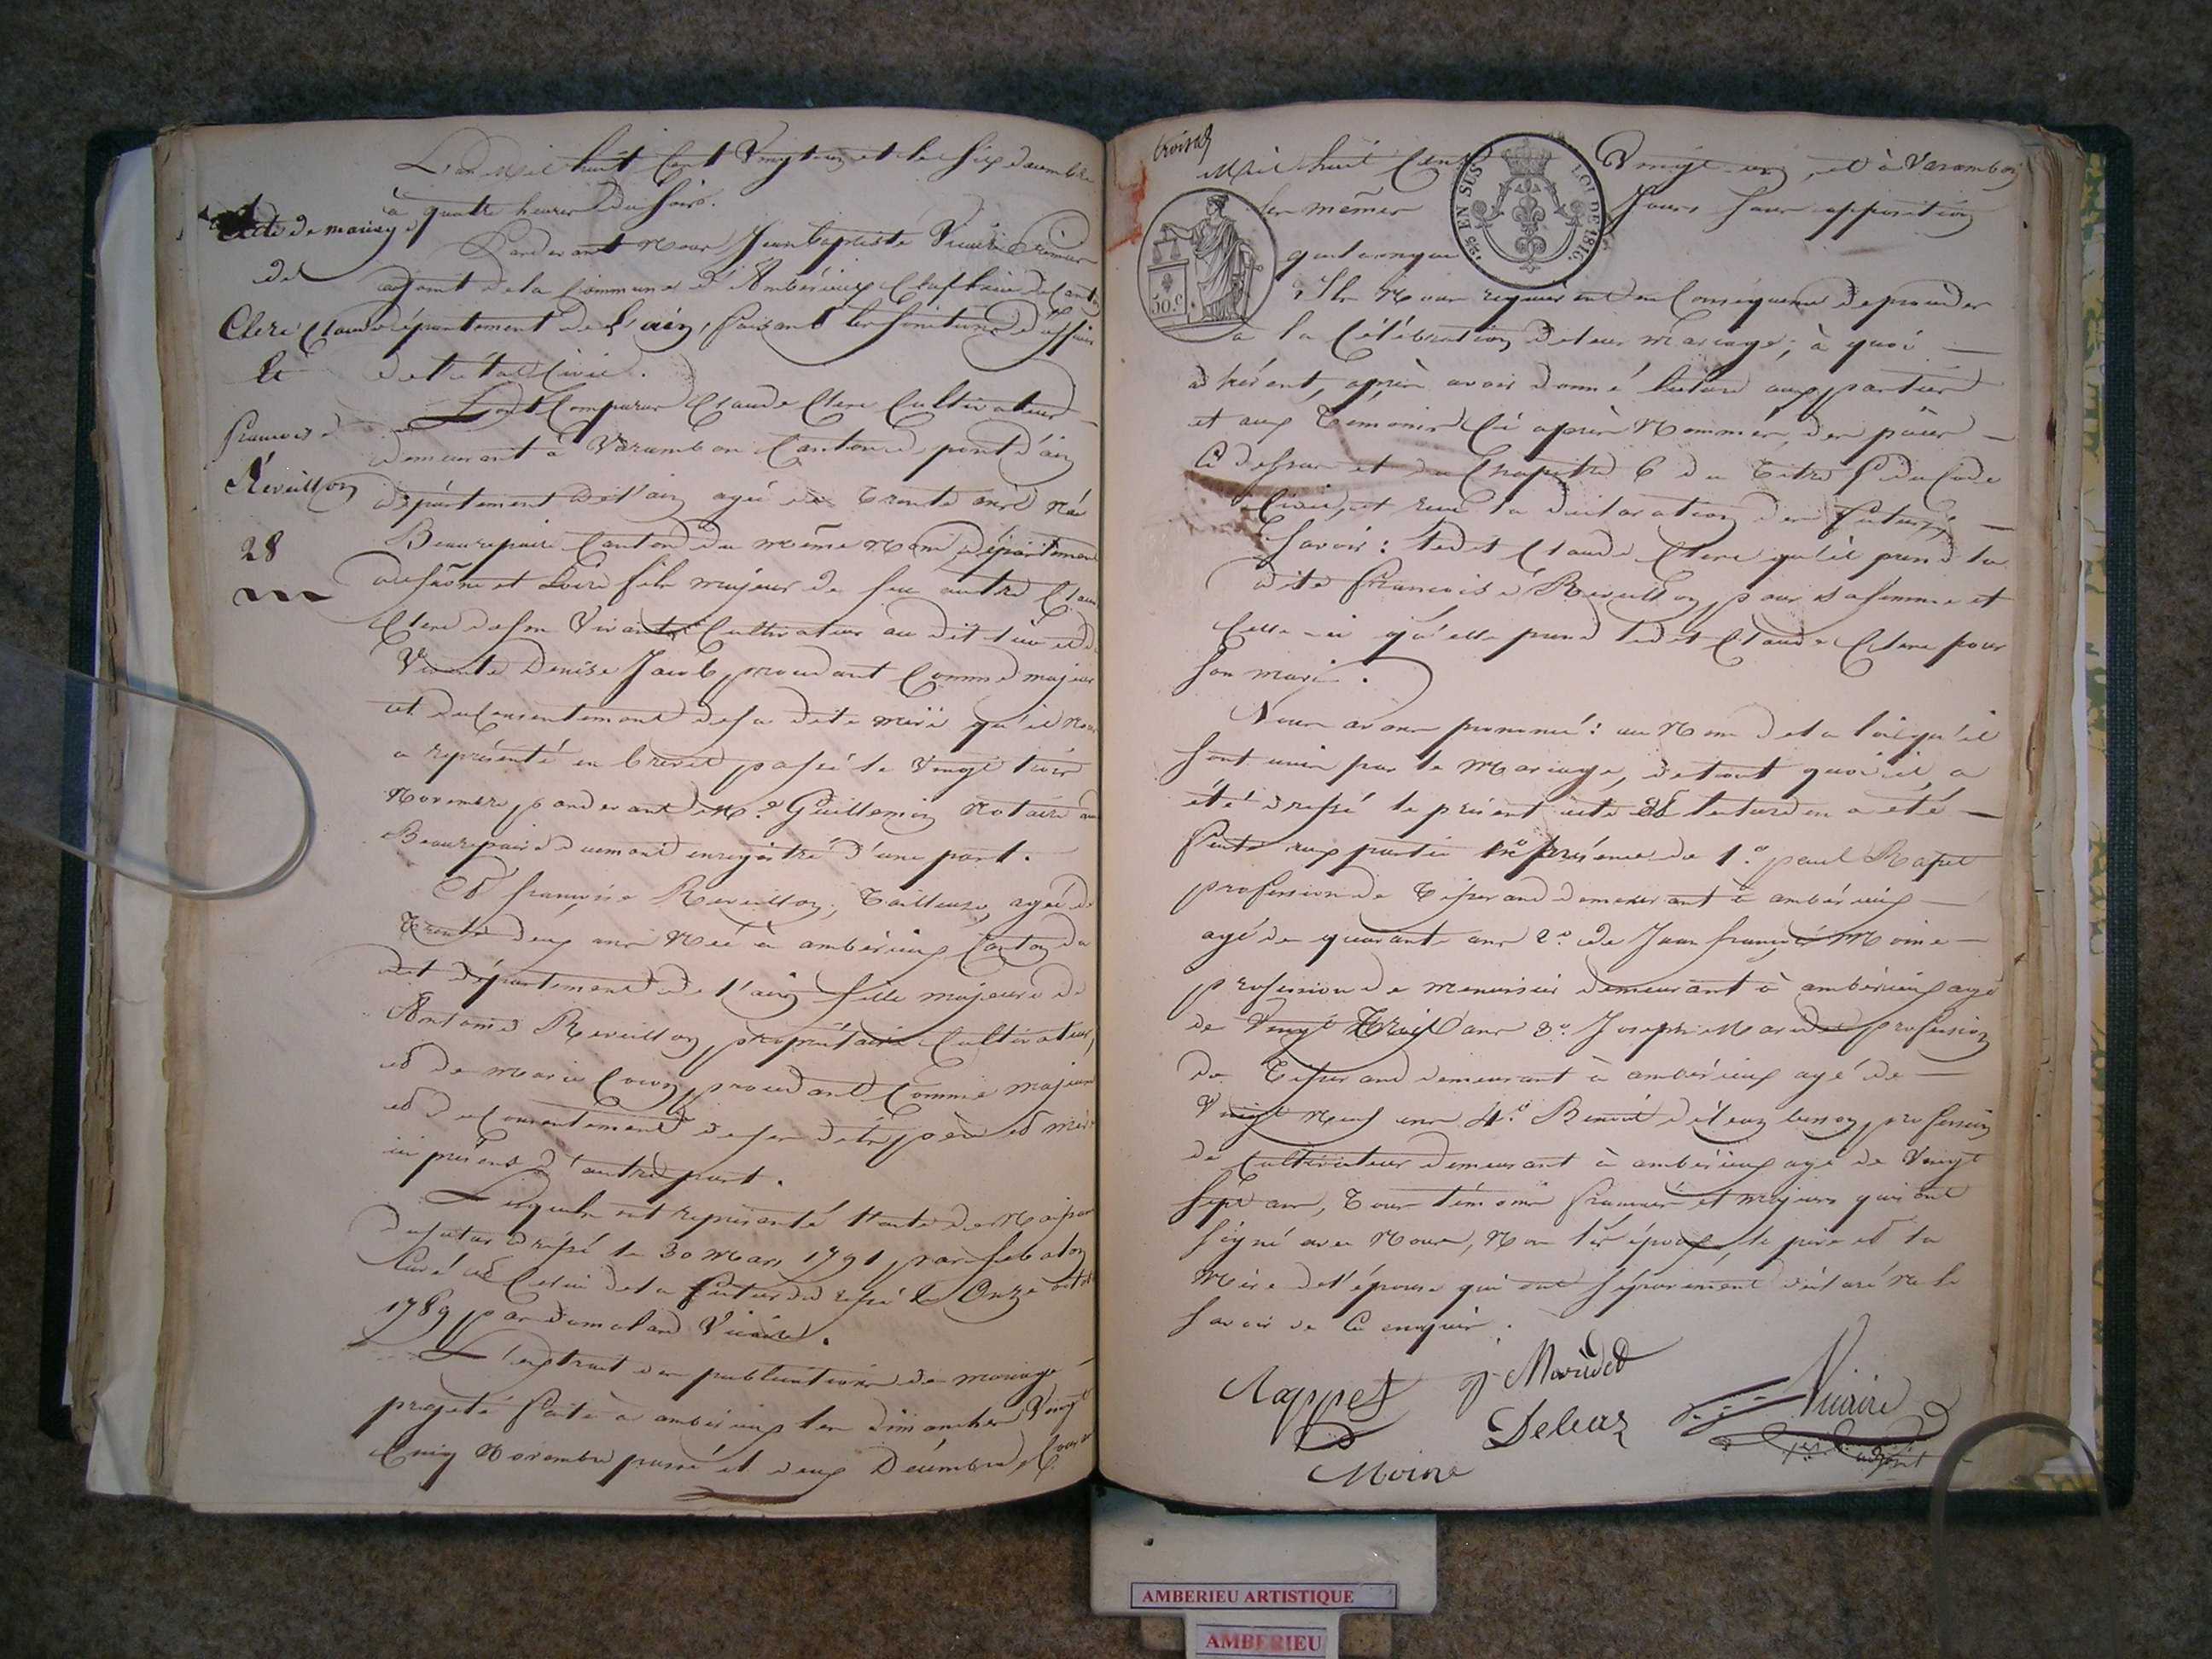 L'an Mil huit Cent Vingt un et le Six décembre
à quatre heures du soir.
Acte de mariage
de
Clerc Claude
et
françoise
Réveillon
28
Pardevant Nous Jean baptiste Vicaire Premier
adjoint de la Commune d'Ambérieux Cheflieu de Canton
département de l'ain, faisant les fonctions d'officier
de l'état Civil.
Sont Comparus Claude Clerc Cultivateur
demeurant à Varambon Canton de pont d'ain
département de l'ain agé de Trente ans Né
Beaurepaire Canton du même Nom département
de Saône et Loire fils majeur de feu autre Claude
Clerc de son Vivant Cultivateur au dit lieu et de
Vivante Denise Jacob, procedant Comme majeur
et du Consentement de sa dite mère qu'il Nous
a représenté en brevet passé le Vingt trois
Novembre pardevant Me Guillemin Notaire au
Beaurepaire duement enregistré d'une part.
Et françoise Reveillon, Tailleuse, agée de
Trente deux ans Née à ambérieux Canton du
dit département de l'ain fille majeure de
Antoine Reveillon propriétaire Cultivateur,
et de marie procedant Comme majeure
et du Consentement de ses dits père et mère
ici présens d'autre part.
Lesquels ont représenté l'acte de Naissance
du futur dressé le 30 Mars 1791, par
Curé et Celui de la future dressé le Onze
1789 par Vicaire.
L'extrait des publications de mariage
projeté faite à ambérieux les dimanches Vingt
Cinq Novembre passé et deux Décembre,
troisd
Mil huit Cent Vingt un, et à Varambon
les mêmes Jours Sans opposition
quelconque
125 EN SUS LOI DE 1816.
50 c.
Ils Nous requierent en Conséquence de proceder
à la Célébration de leur Mariage; à quoi
adhérent, après avoir donné lecture aux parties
et aux Temoins Ci après Nommés, des pièces
Ci dessus et du Chapitre 6 du Titre du Code
Civil, et recu la déclaration des futurs,
Savoir: ledit Claude Clerc qu'il prend la
dite Françoise Reveillon pour sa femme et
Celle-ci qu'elle prend ledit Claude Clerc pour
Son mari.
Nous avons prononcé: au Nom de la loi qu'il
Sont unis par le Mariage, de tout quoi il a
été dressé le présent acte et lecture en a été
faite aux parties en présence de 1.° paul Rapet
profession de Tisserand demeurant à ambérieux
agé de quarante ans 2.° de Jean françois Moine
profession de menuisier demeurant à ambérieux agé
de Vingt Trois ans 3.° Joseph Maridet profession
de Tisserand demeurant à ambérieux agé de
Vingt Neuf ans 4.° Benoit profession
de Cultivateur demeurant à ambérieux agé de Vingt
Sept ans, Tous témoins français et Majeurs qui ont
Signé avec Nous, Non les époux, le père et la
Mère de l'épouse qui ont séparément déclaré Ne le
savoir de Ce enquis.
Rappet J Maridet
Deleaz
Vicaire
1er adjoint
Moine
AMBERIEU ARTISTIQUE
AMBERIEU